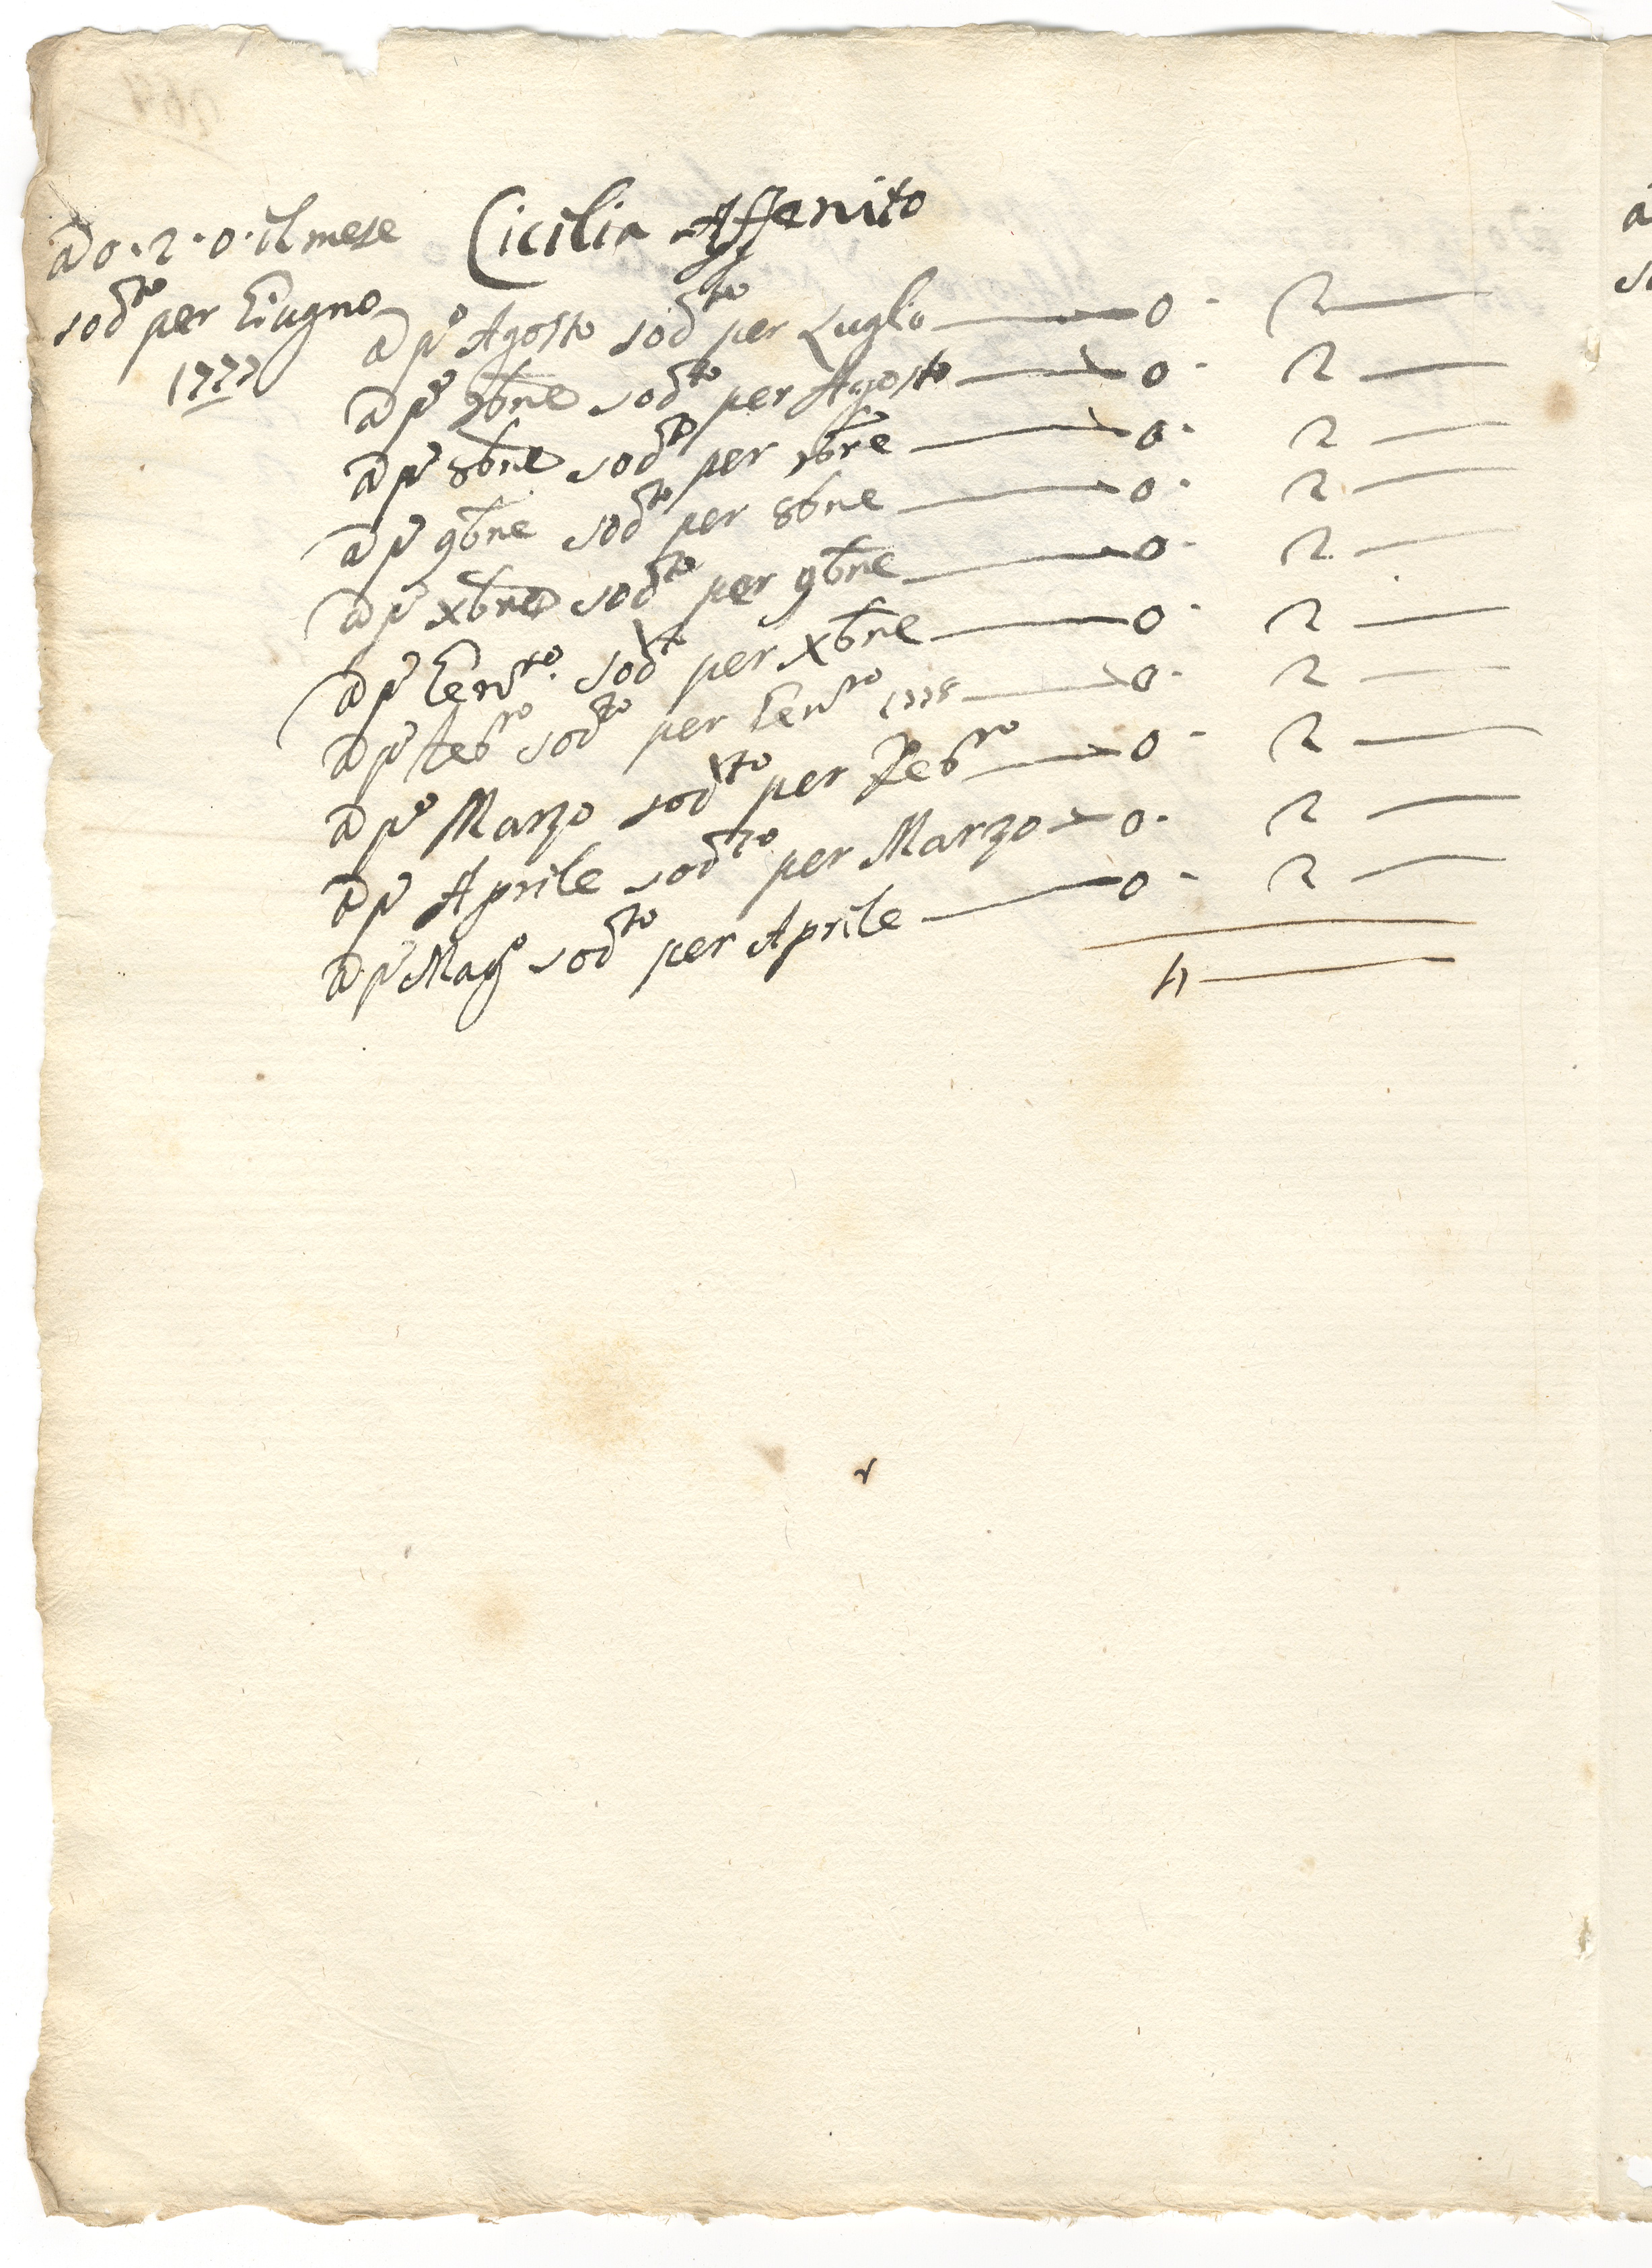 a 0·2·0· il mese
Cicilia Affenito
sod.to per Giugno
1777
a p.o Agosto sod.to per Luglio — 0 - 2 —
a p.o 7bre sod.to per Agosto — 0 - 2 —
a p.o 8bre sod.to per 7bre — 0 - 2 —
a p.o 9bre sod.to per 8bre — 0 - 2 —
a p.o xbre sod.to per 9bre — 0 - 2 —
a p.o Gen.ro sod.to per xbre — 0 - 2 —
a p.o feb.ro sod.to per Gen.ro 1778 — 0 - 2 —
a p.o Marzo sod.to per Feb.ro — 0 - 2 —
a p.o Aprile sod.to per Marzo — 0 - 2 —
a p.o Mag.o sod.to per Aprile — 0 - 2 —